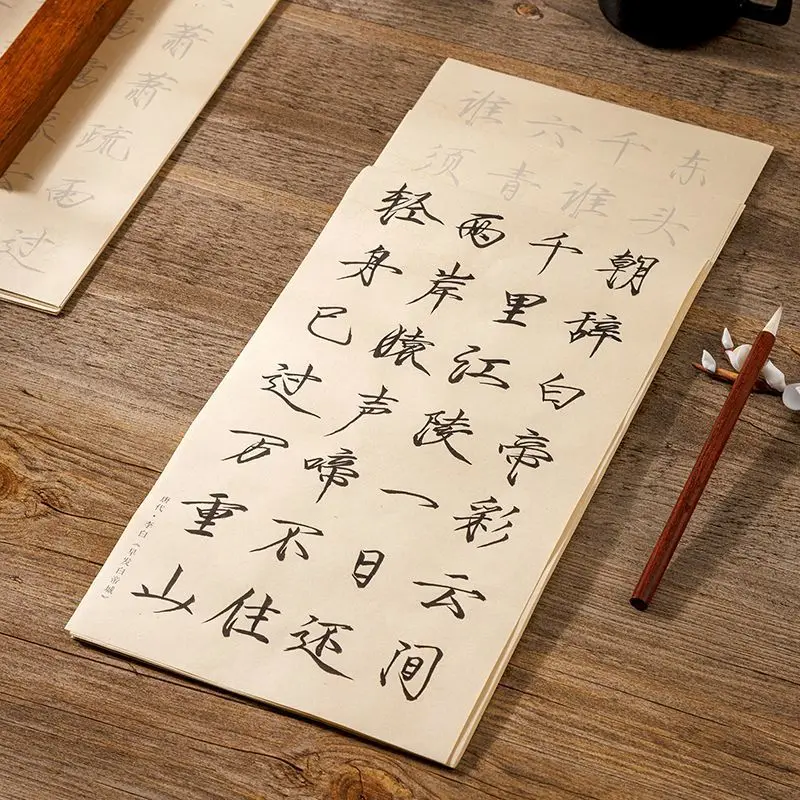 朝辞白帝彩云间
千里江陵一日还
两岸猿声啼不住
轻舟已过万重山
唐代·李白《早发白帝城》
东头
千谁
六青
谁须
萧萧疏雨过